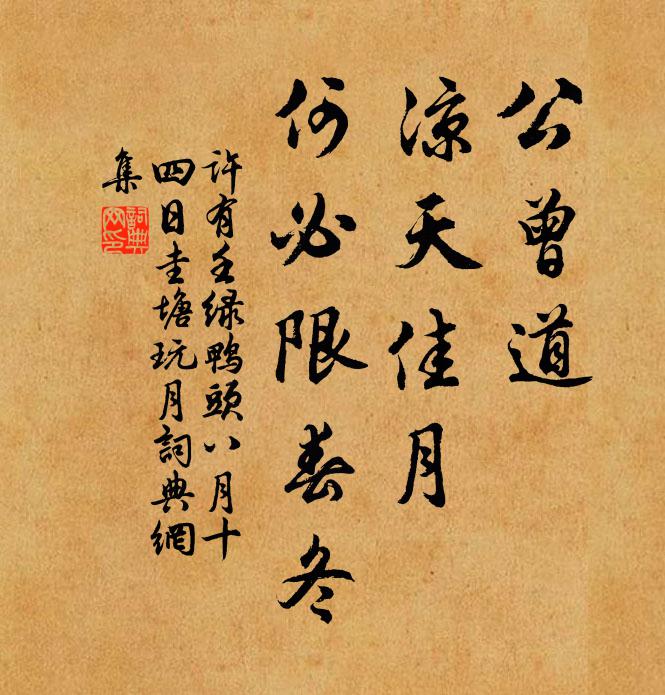 公曾道
凉天佳月
何必限春冬
许有壬绿鸭頭八月十
四日圭塘玩月詞典網
集
詞典
网印